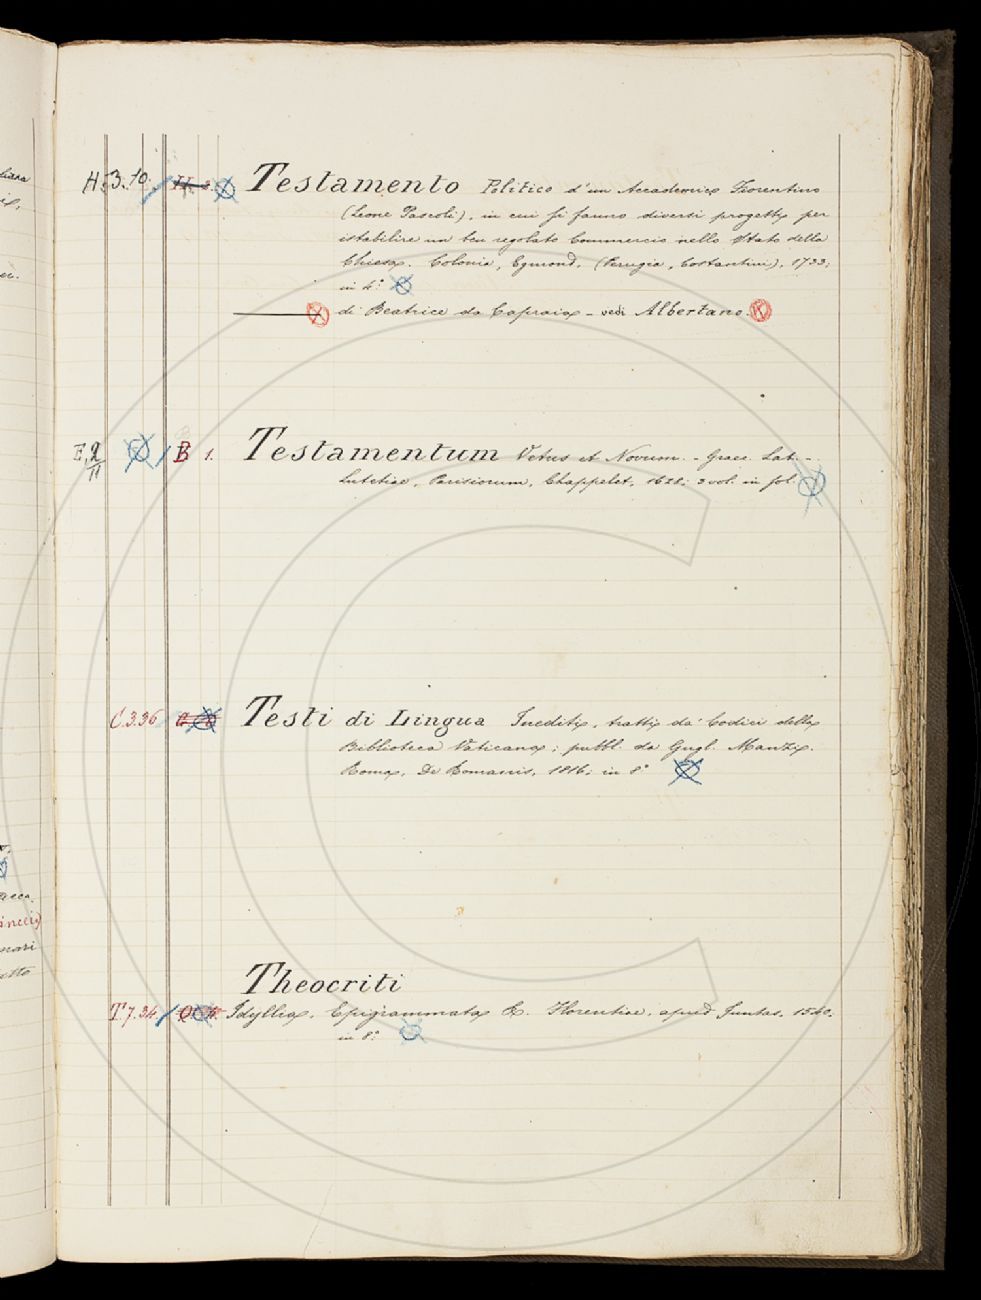 H. 3. 10. Testamento Politico d'un Accademico Fiorentino
(Leone Pascoli), in cui si fanno diversi progetti per
istabilire un ben regolato Commercio nello Stato della
Chiesa. Colonia, Egmond, (Perugia, Costantini), 1733;
in 4º
di Beatrice da Capraia - vedi Albertano.
B 1. Testamentum Vetus et Novum. - Graec. Lat. -
Lutetiae, Parisiorum, Chappelet, 1628; 3 vol. in fol.
C.3.36 Testi di Lingua Inediti, tratti da' Codici della
Biblioteca Vaticana; pubbl. da Gugl. Manzi.
Roma, De Romanis, 1816; in 8º
Theocriti
T.7.34. Idyllia, Epigrammata &. Florentiae, apud Juntas, 1540.
in 8º